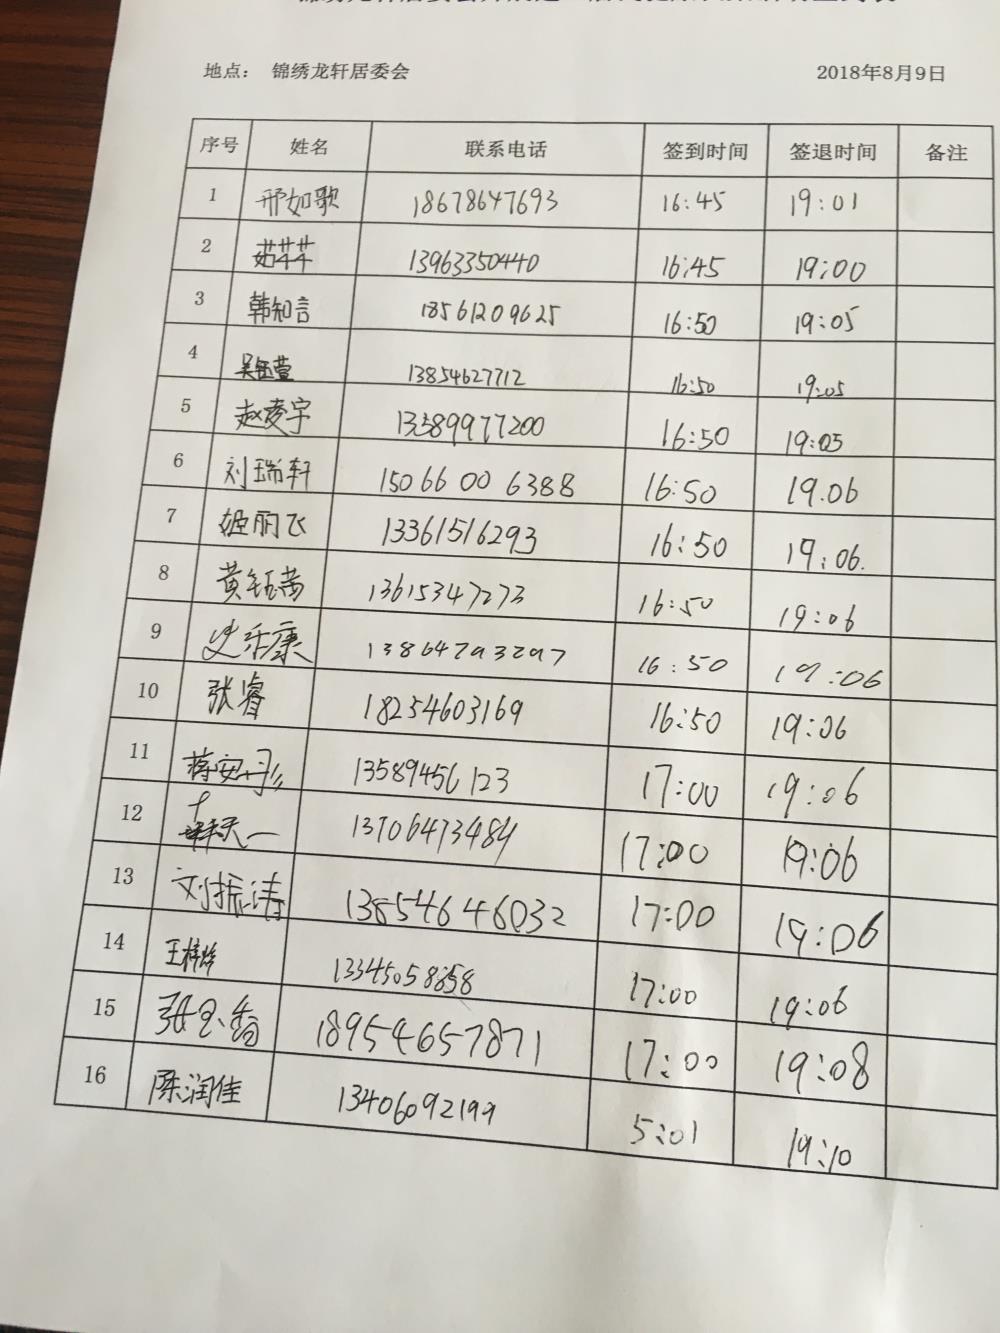 地点： 锦绣龙轩居委会 2018年8月9日
序号 姓名 联系电话 签到时间 签退时间 备注
1 邢如歌 18678647693 16:45 19:01
2 茹芊芊 13963350440 16:45 19:00
3 韩知言 18561209625 16:50 19:05
4 吴钰萱 13854627712 16:50 19:05
5 赵凌宇 13589977200 16:50 19:05
6 刘瑞轩 150 66 00 6388 16:50 19.06
7 姬丽飞 13361516293 16:50 19:06.
8 黄钰茜 13615347273 16:50 19:06
9 史乐康 13864793297 16:50 19:06
10 张睿 18254603169 16:50 19:06
11 蒋安彤 13589456123 17:00 19:06
12 天一 13706473484 17:00 19:06
13 刘振涛 13854646032 17:00 19:06
14 王梓 13345058658 17:00 19:06
15 张 18954657871 17:00 19:08
16 陈润佳 13406092199 5:01 19:10